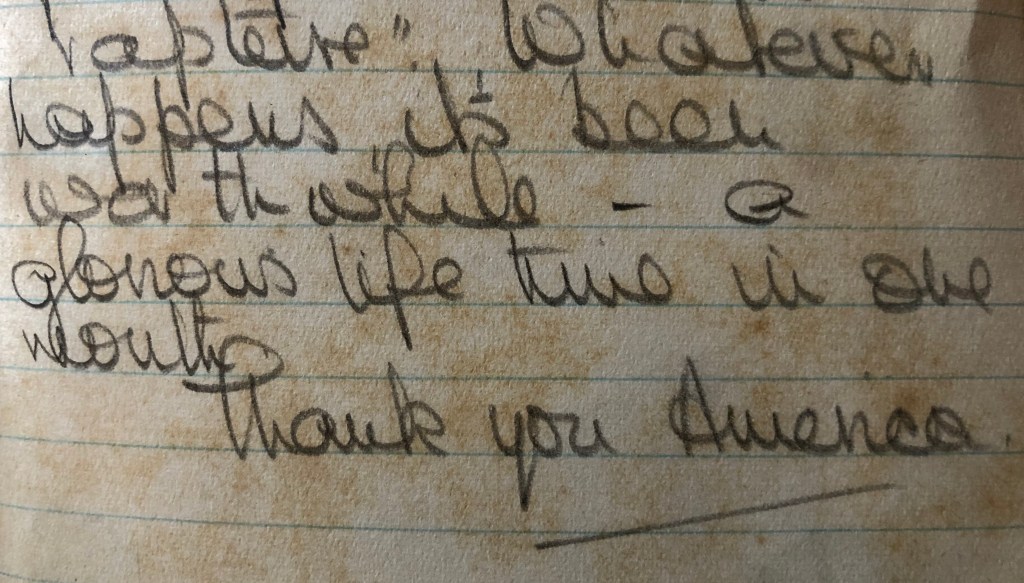 rapture". Whatever
happens it's been
worth while - a
glorious life time in one
month
Thank you America.